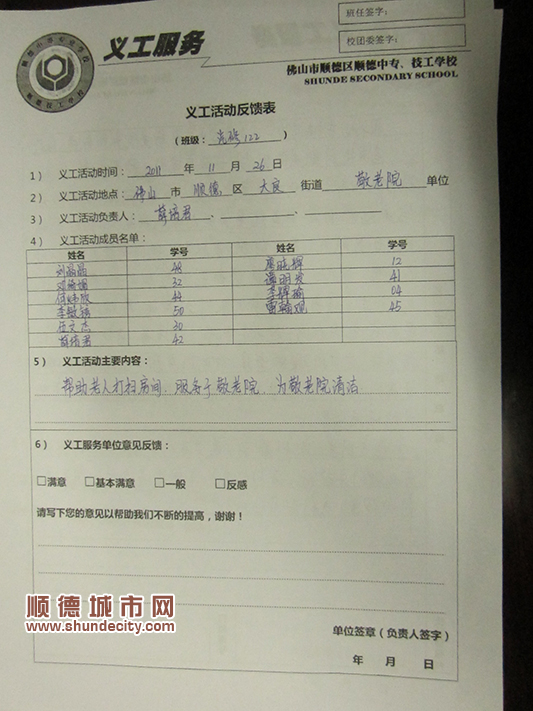 班任签字：
校团委签字：
义工服务
佛山市顺德区顺德中专、技工学校
SHUNDE SECONDARY SCHOOL
顺德技工学校
义工活动反馈表
（班级： 122 ）
1） 义工活动时间： 2011 年 11 月 26 日
2） 义工活动地点： 佛山 市 顺德 区 大良 街道 敬老院 单位
3） 义工活动负责人：
4） 义工活动成员名单：
姓名 学号 姓名 学号
刘晶晶 48 12
32 41
44 04
50 45
30
42
5） 义工活动主要内容：
帮助老人打扫房间、服务于敬老院、为敬老院清洁
6） 义工服务单位意见反馈：
□满意 □基本满意 □一般 □反感
请写下您的意见以帮助我们不断的提高，谢谢！
顺德城市网
www.shundecity.com
单位签章（负责人签字）
年 月 日